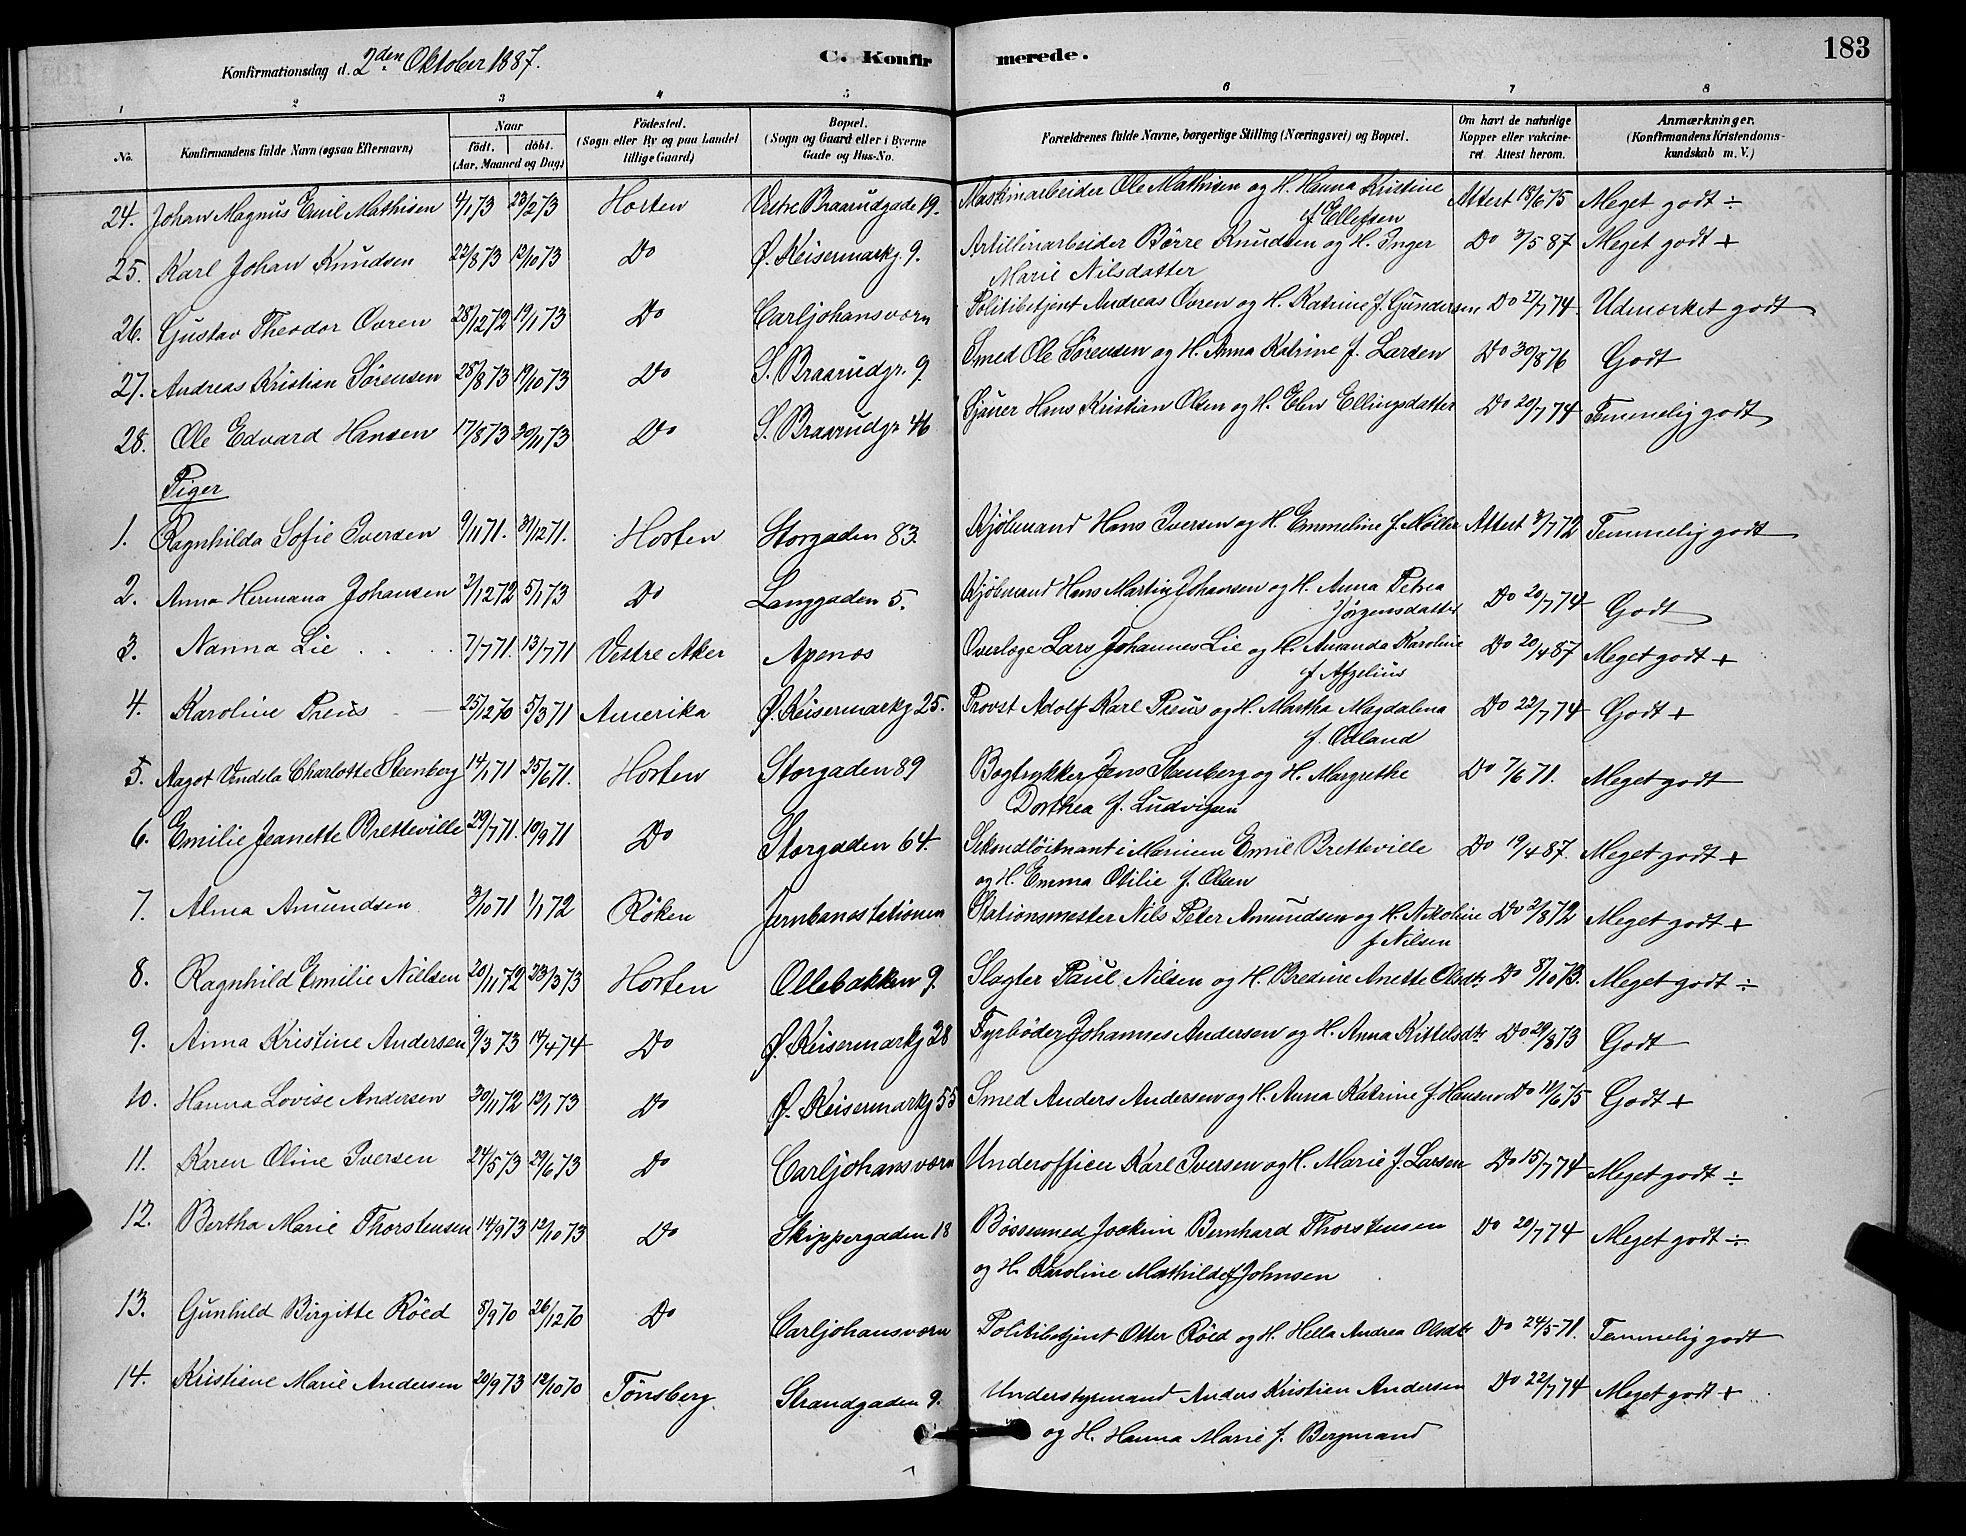 Konfirmationsdag d. 2den Oktober 1887.
C. Konfirmerede.
183
1 2 3 4 5 6 7 8
No. Konfirmandens fulde Navn (ogsaa Efternavn) Naar födt. döbt. (Aar, Maaned og Dag) Födested. (Sogn eller By og paa Landet tillige Gaard) Bopæl. (Sogn og Gaard eller i Byerne Gade og Hus-No. Forældrenes fulde Navne, borgerlige Stilling (Næringsvei) og Bopæl. Om havt de naturlige Kopper eller vakcineret. Attest herom. Anmærkninger. (Konfirmandens Kristendomskundskab m. V.)
24. Johan Magnus Emil Mathisen 4/1 73 23/2 73 Horten Vestre Braarudgade 19. Maskinarbeider Ole Mathisen og H. Hanna Kristine Attest 18/6 75 Meget godt ÷
f Ellefsen
25. Karl Johan Knudsen 22/8 73 12/10 73 Do Ø. Keisermarkg. 9. Artilliriarbeider Börre Knudsen og H. Inger Do 3/5 87 Meget godt +
Marie Nilsdatter
26. Gustav Theodor Ovren 28/12 72 19/1 73 Do Carljohansværn Politibetjent Andreas Ovren og H. Katrine f. Gundersen Do 27/7 74 Udmærket godt
27. Andreas Kristian Sörensen 28/8 73 19/10 73 Do S. Braarudgr. 9. Smed Ole Sörensen og H. Anna Katrine f. Larsen Do 30/8 76 Godt
28. Ole Edvard Hansen 17/8 73 30/11 73 Do S. Braarudgr 46 Sjauer Hans Kristian Olsen og H. Elen Ellingsdatter Do 20/7 74 Temmelig godt
Piger
1. Ragnhilda Sofie Iversen 9/11 71. 31/12 71. Horten Storgaden 83. Kjöbmand Hans Iversen og H. Emmeline f. Möller Attest 3/7 72 Temmelig godt
2. Anna Hermana Johansen 2/12 72 5/1 73 Do Langgaden 5. Kjöbmand Hans Martin Johansen og H. Anna Petrea Do 20/7 74 Godt
Jörgensdatter
3. Nanna Lie 7/7 71. 13/7 71 Vestre Aker Apenæs Overlæge Lars Johannes Lie og H. Amanda Karoline Do 20/4 87 Meget godt +
f Afzelius
4. Karoline Preus 25/12 70 5/3 71 Amerika Ø. Keisermarkg 25. Provst Adolf Karl Preus og H. Martha Magdalena Do 22/7 74 Godt +
f. Odland
5. Aagot Vendela Charlotte Steenberg 14/1 71 25/6 71. Horten Storgaden 89 Bogtrykker Jens Steenberg og H. Margrethe Do 7/6 71. Meget godt
Dorthea f. Ludvigsen
6. Emilie Jeanette Bretteville 29/7 71. 10/9 71 Do Storgaden 64. Sekondlöitnant i Marinen Emil Bretteville Do 19/4 87. Meget godt +
og H. Emma Otilie f. Olsen
7. Alma Amundsen 3/10 71 1/1 72 Röken Jernbanestationen Stationsmester Nils Peter Amundsen og H. Nikoline Do 2/8 72 Meget godt +
f Nilsen
8. Ragnhild Emilie Nielsen 20/11 72 23/3 73 Horten Ollebakken 9. Slagter Paul Nilsen og H. Bredine Anette Olsdt Do 8/10 73. Meget godt ÷
9. Anna Kristine Andersen 9/3 73 14/4 74 Do Ø. Keisermarkg 28 Fyrböder Johannes Andersen og H. Anna Kittelsdt Do 29/8 73 Godt
10. Hanna Lovise Andersen 30/11 72 12/1 73 Do Ø. Keisermarkg 55 Smed Anders Andersen og H. Anna Katrine f. Hansen Do 11/6 75 Godt +
11. Karen Oline Iversen 24/5 73 29/6 73 Do Carljohansværn Underofficer Karl Iversen og H. Marie f. Larsen Do 15/7 74 Meget godt ÷
12. Bertha Marie Thorstensen 14/9 73 12/10 73 Do Skippergaden 18 Bössesmed Joakim Bernhard Thorstensen Do 20/7 74 Meget godt ÷
og H. Karoline Mathilde f Johnsen
13. Gunhild Birgitte Röed 8/9 70 26/12 70 Do Carljohansværn Politibetjent Otter Röed og H. Hella Andrea Olsdt Do 24/5 71. Temmelig godt
14. Kristiane Marie Andersen 20/9 73 12/10 70 Tönsberg Strandgaden 9. Understyrmand Anders Kristian Andersen Do 22/7 74 Meget godt +
og H. Hanna Marie f. Bergmand